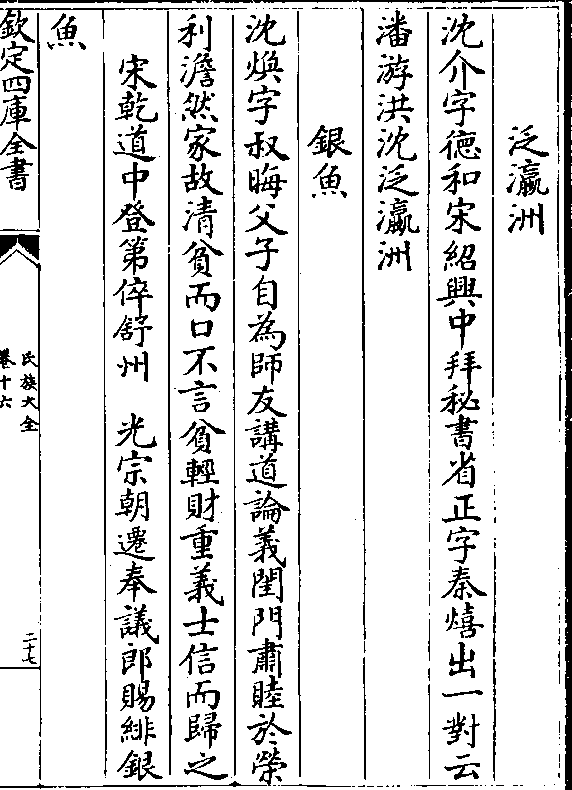 泛瀛洲
沈介字德和宋紹興中拜秘書省正字秦熺出一對云
潘游洪沈泛瀛洲
銀魚
沈煥字叔晦父子自為師友講道論義閨門肅睦於榮
利澹然家故清貧而口不言貧輕財重義士信而歸之
宋乾道中登第倅舒州　光宗朝遷奉議郎賜緋銀
魚
欽定四庫全書
氏族大全
卷十六
二十七